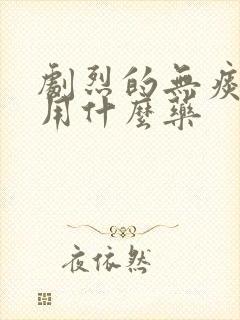 劇烈的無痰
用什麼藥
夜依然